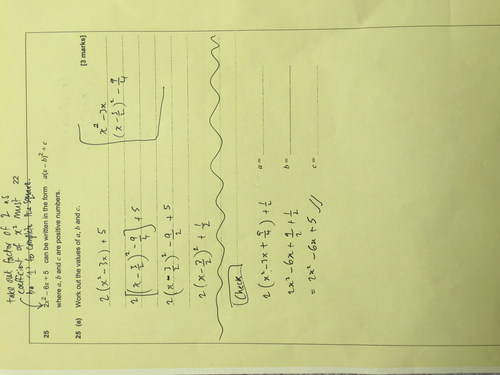 take out factor of 2 as
coefficient of x² must
be 1 to complete the square.
22
25 2x² – 6x + 5 can be written in the form a(x – b)² + c
where a, b and c are positive numbers.
25 (a) Work out the values of a, b and c.
[3 marks]
2(x² - 3x) + 5
x² - 3x
(x - 3/2)² - 9/4
2[(x - 3/2)² - 9/4] + 5
2(x - 3/2)² - 9/2 + 5
2(x - 3/2)² + 1/2
Check
a =
2(x² - 3x + 9/4) + 1/2
b =
2x² - 6x + 9/2 + 1/2
c =
= 2x² - 6x + 5 //